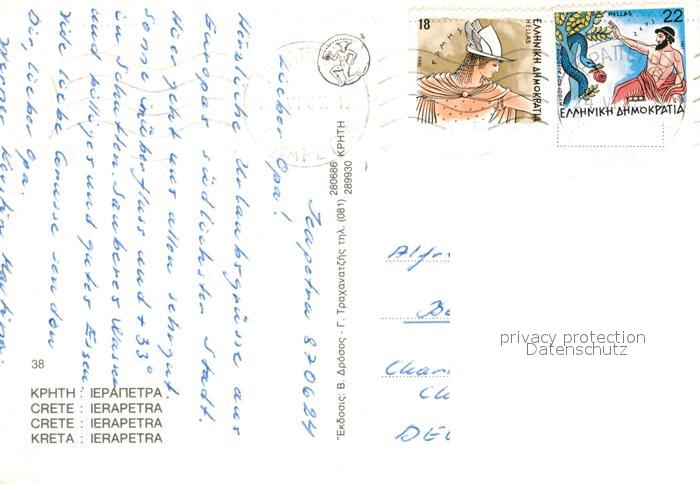 Ierapetra 870624
Lieber Opa!
Herzliche Urlaubsgrüsse aus
Europas südlichster Stadt.
Hier geht uns allen sehr gut.
Sonne im Überfluss und +33°
im Schatten. Sauberes Wasser
und billiges und gutes Essen.
Viele liebe Grüsse senden
Dir, lieber Opa.
38
ΚΡΗΤΗ : ΙΕΡΑΠΕΤΡΑ
CRETE : IERAPETRA
CRETE : IERAPETRA
KRETA : IERAPETRA
Έκδοσις: Β. Δρόσος - Γ. Τραχανατζής τηλ. (081) 280686 ΚΡΗΤΗ
289930
18
ΕΡΜΗΣ
1986
ΕΛΛΗΝΙΚΗ ΔΗΜΟΚΡΑΤΙΑ
HELLAS
22
HELLAS
ΕΛΛΗΝΙΚΗ ΔΗΜΟΚΡΑΤΙΑ
Alfr
DE
privacy protection
Datenschutz